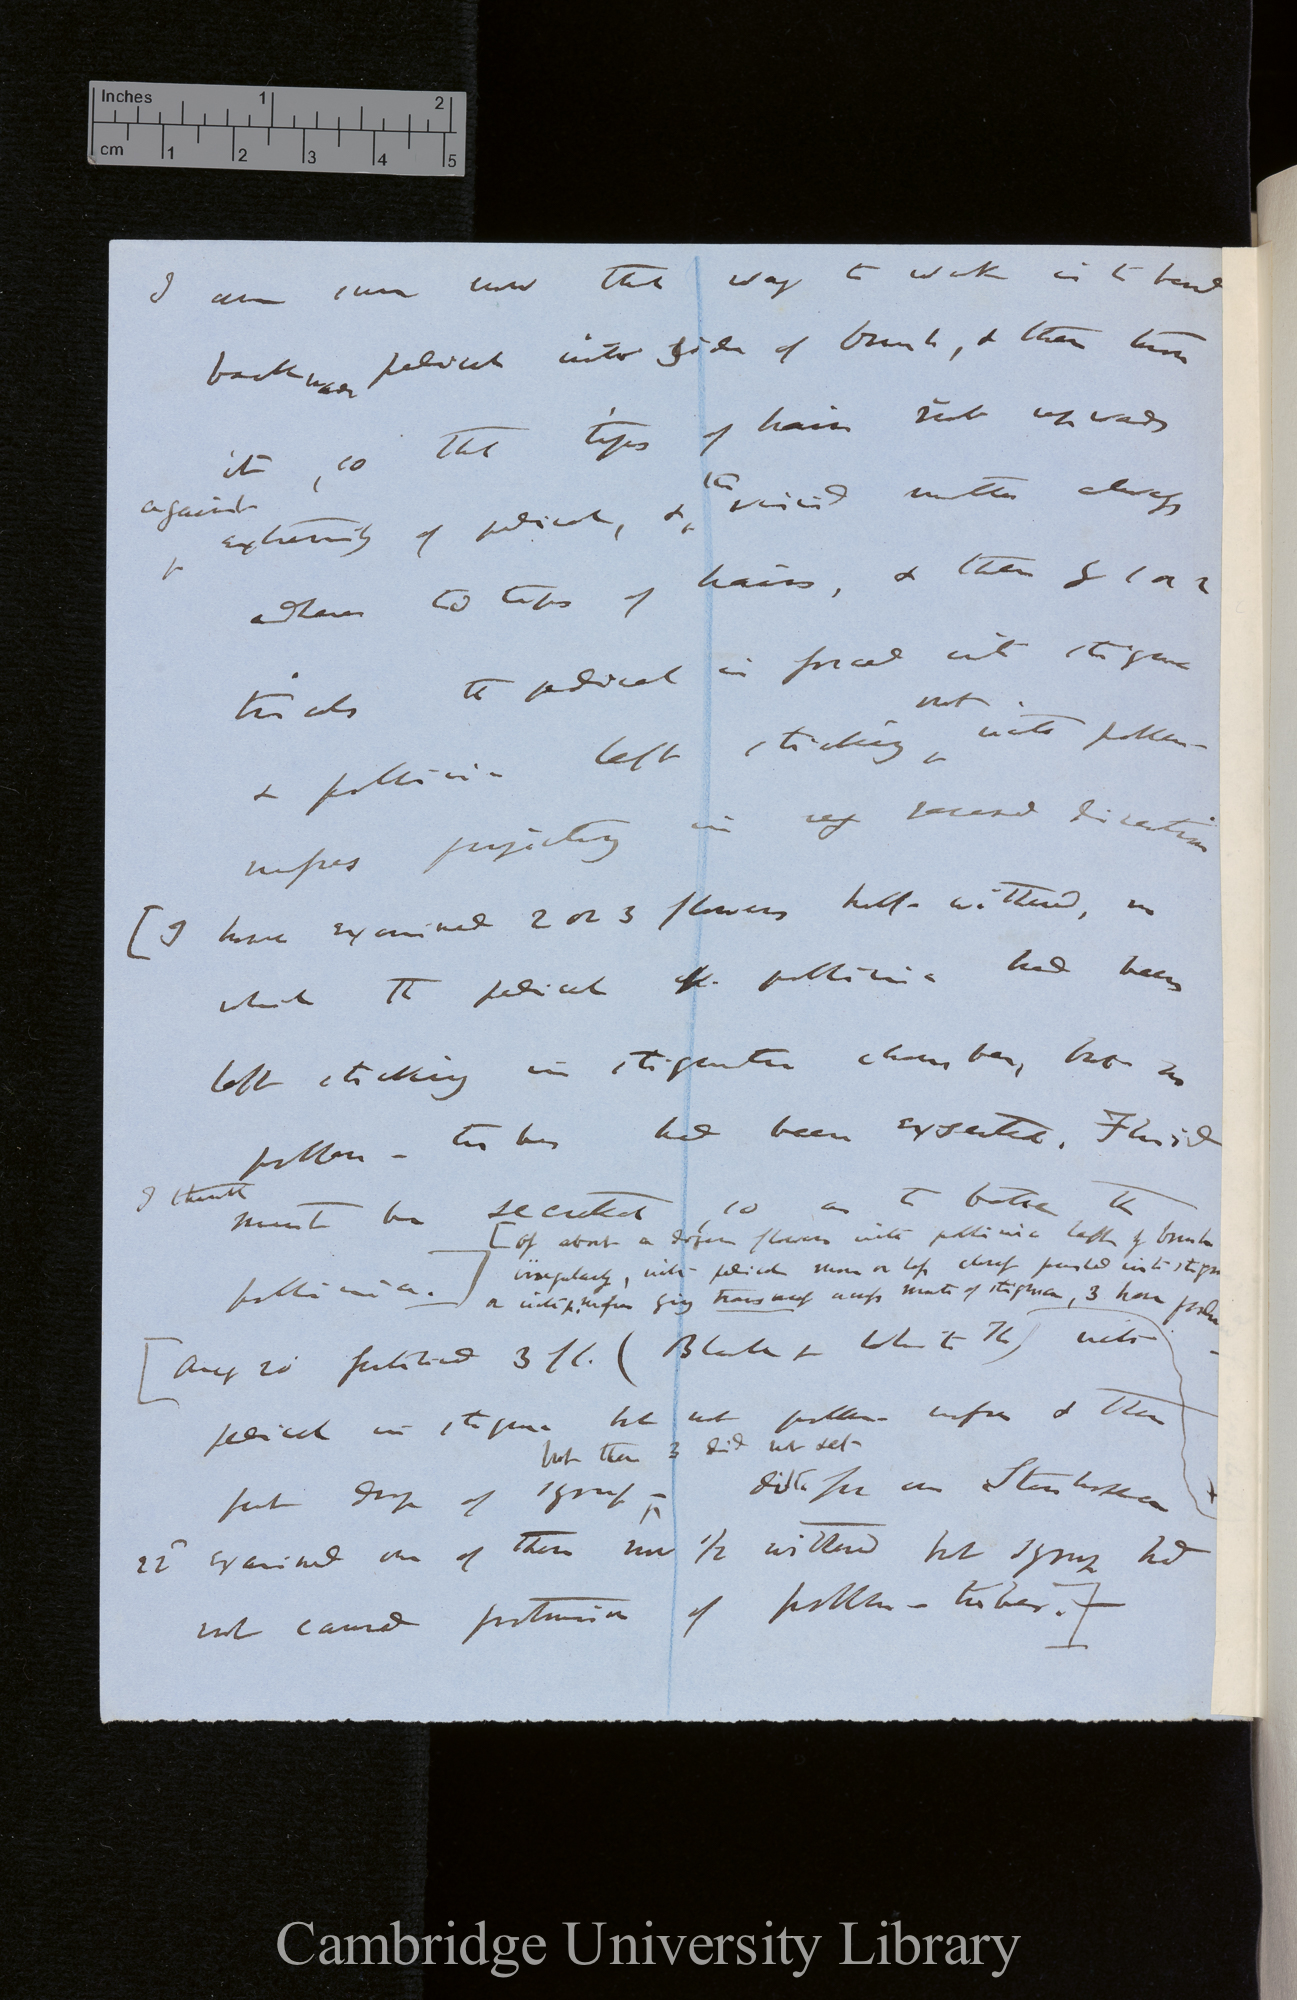 Inches 1 2
cm 1 2 3 4 5
I am sure now that way to work is to bend
backward pedicel into side of brush, & then turn
it, so that tips of hairs rub upwards
against extremity of pedicel, & the viscid matter always
adheres to tips of hairs, & then by 1 or 2
trials the pedicel is forced into stigma
& pollinia left sticking, not with pollen-
masses projecting in reversed direction
[I have examined 2 or 3 flowers half-withered, in
which the pedicel of pollinia had been
left sticking in stigmatic chamber, but no
pollen-tubes had been exserted. Fluid
I think must be secreted so as to bathe the
pollinia.]
[Of about a dozen flowers with pollinia left by brush
irregularly, with pedicel more or less closely pushed into stigma
or with p. masses lying transversely across mouth of stigma, 3 have
[Aug 20 fertilised 3 fl. (Black & White Th) with
pedicel in stigma but not pollen-masses & then
put drop of syrup
but these 3 did not set
ditto for on Stanhopea
22d examined one of them now 1/2 withered but syrup had
not caused protrusion of pollen-tubes.]
Cambridge University Library